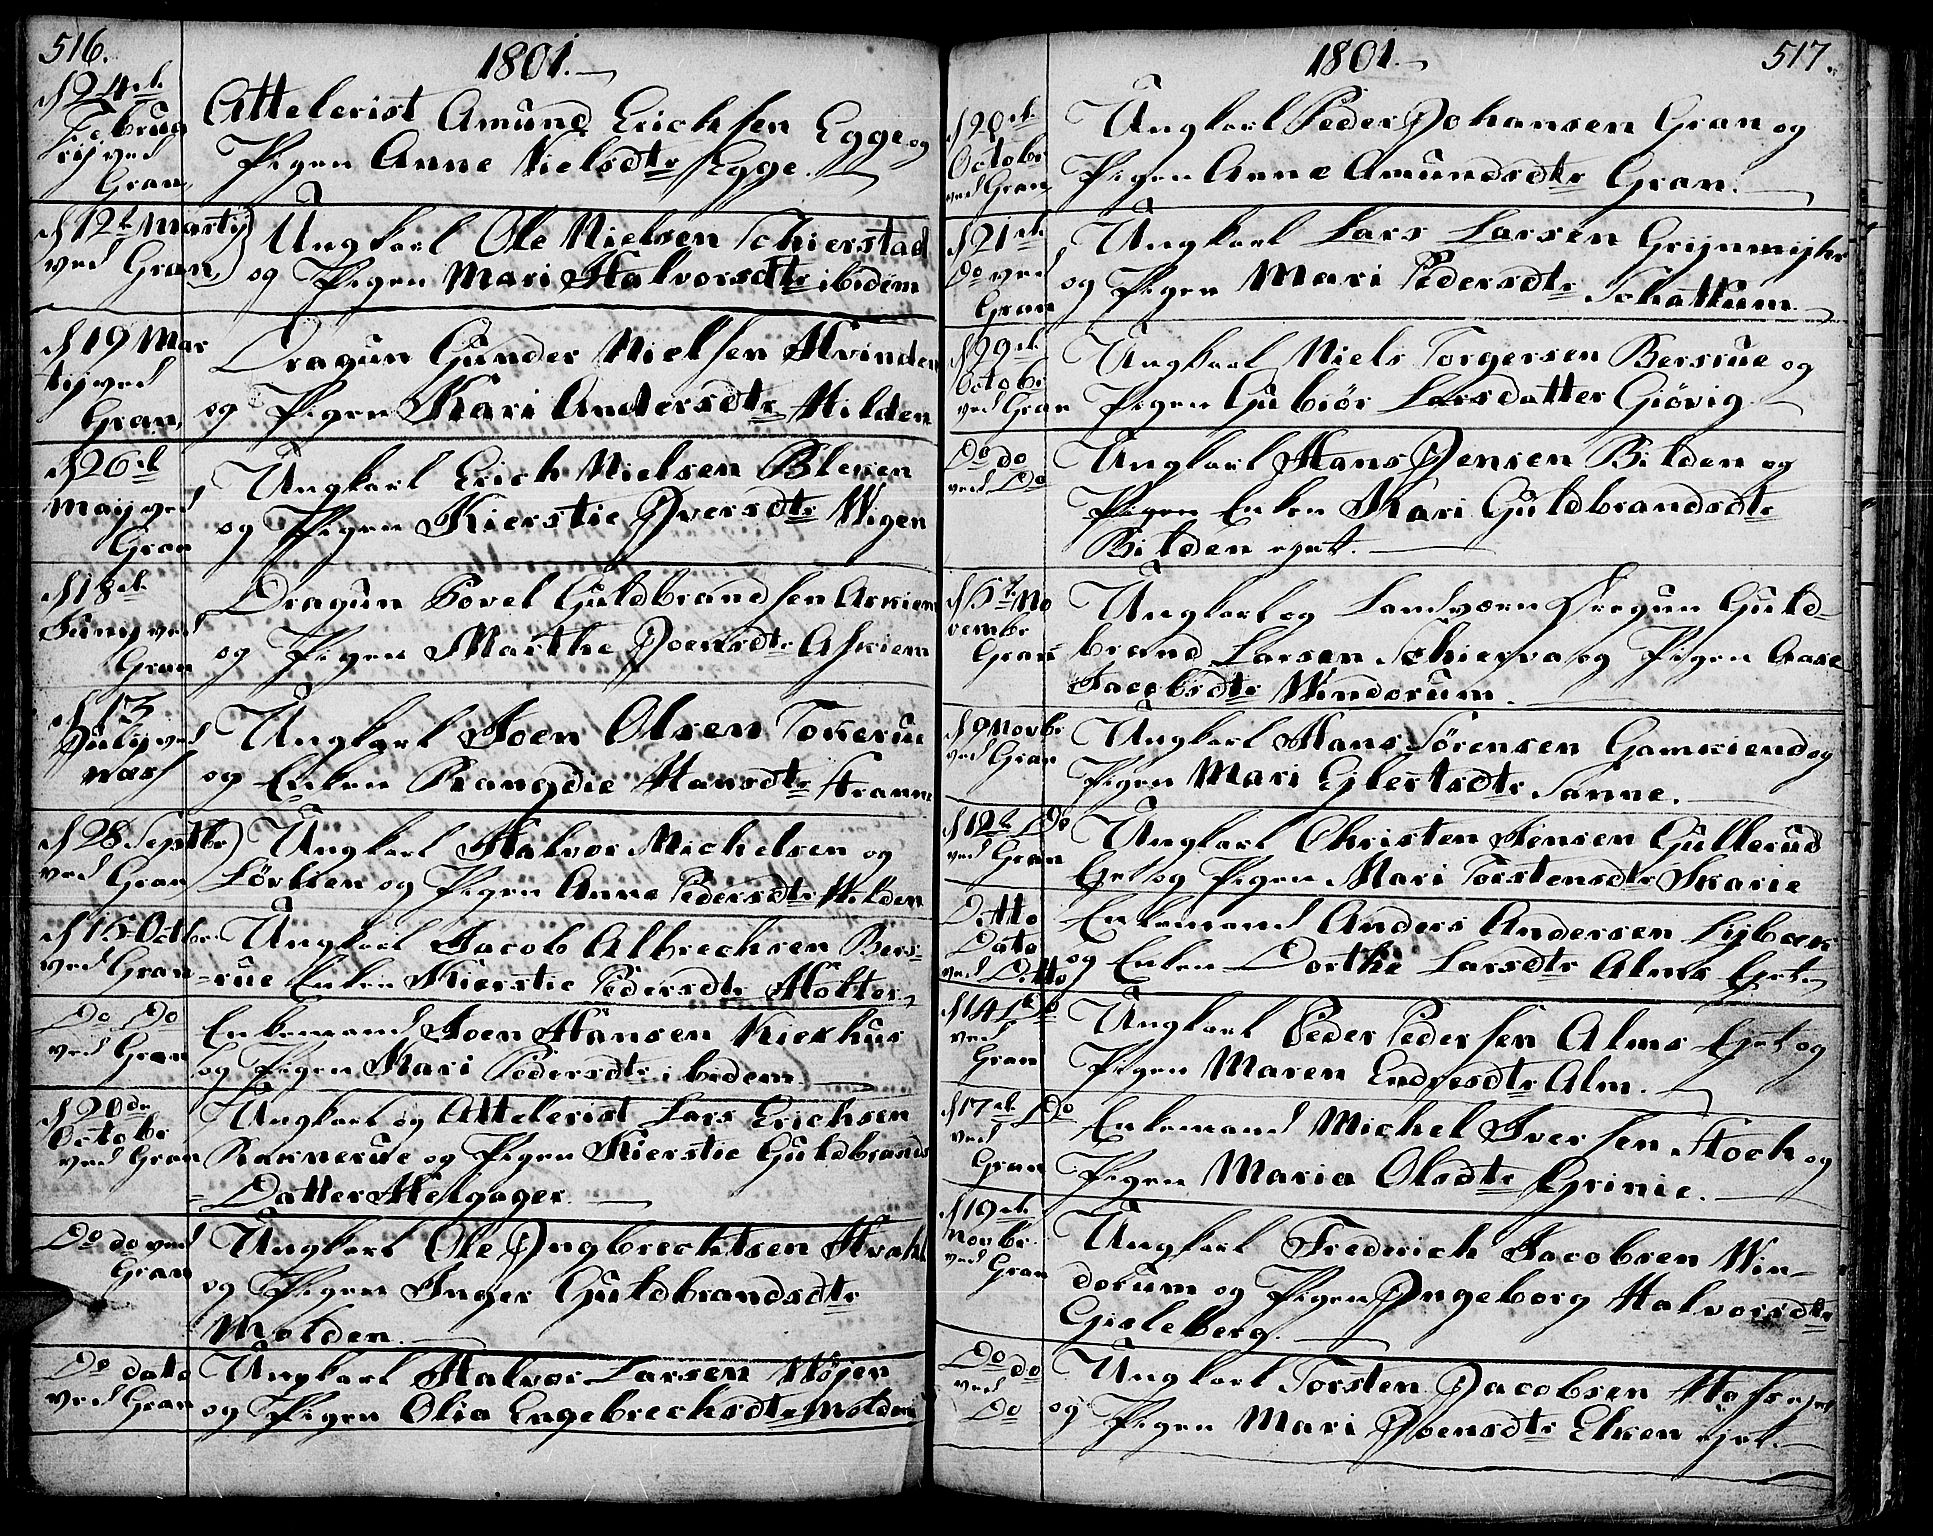 516.
1801.
d 24de
Februa
rij ved
Gran,
Attelerist Amund Erichsen Egge og
Pigen Anne Nielsdtr Egge.
d 12t Martij
ved Gran,
Ungkarl Ole Nielsen Schierstad
og Pigen Mari Halvorsdtr ibidem
d 19 Mar
tij ved
Gran,
Dragun Gunder Nielsen Hvinden
og Pigen Kari Andersdtr Hilden
d 26de
Maij ved
Gran
Ungkarl Erich Nielsen Bleken
og Pigen Kierstie Iversdtr Wigen
d 18de
Juny ved
Gran
Dragun Povel Guldbrandsen Askiem
og Pigen Marthe Joensdtr Askiem
d 13
July ved
Næs
Ungkarl Joen Olsen Tokerue
og Enken Rangdie Hansdtr
d 28 Septbr
ved Gran
Ungkarl Halvor Michelsen og
Lørkien og Pigen Anne Pedersdtr Hilden
d 15 Octbr
ved Gran
Ungkarl Jacob Albrechsen Bers-
-rue Enken Kierstie Pedersdtr Holter,
Do Do
ved Gran
Enkemand Joen Hansen Kiekhus
og Pigen Kari Pedersdtr ibidem.
d 20de
Octobr
ved Gran
Ungkarl og Attelerist Lars Erichsen
Raknerue og Pigen Kierstie Guldbrands
= Datter Helgager.
Do do ved
Gran
Ungkarl Ole Ingbrechtsen Hvahl
og Pigen Inger Guldbrandsdtr
Molden.
Do dato
ved Gran
Ungkarl Halvor Larsen Højen
og Pigen Olia Engebrechsdtr Molden
1801.
517.
d 20de
Octobr
ved Gran,
Ungkarl Peder Johansen Gran og
Pigen Anne Amundsdtr Gran.
d 21de
Do ved
Gran
Ungkarl Lars Larsen Grijnmijhr
og Pigen Mari Pedersdtr Schattum.
d 29de
Octobr
ved Gran
Ungkarl Niels Torgersen Bersrue og
Pigen Gubiør Larsdatter Giøvig.
Do do
ved Do
Ungkarl Hans Jensen Bilden og
Pigen Enken Kari Guldbrandsdtr
Bilden ejet.
d 5t No
vembr
Gran
Ungkarl og Landværn Dragun Guld-
brand Larsen Schierva og Pigen Aase
Jacobsdtr Windorum.
d 9 Novbr
ved Gran
Ungkarl Hans Sørensen Gamkiend og
Pigen Mari Eylertsdtr Sanne.
d 12t Do
ved Gran
Ungkarl Christen Jensen Gullerud
Ejet og Pigen Mari Torstensdtr Skarie
Ditto
Dato
ved Ditto
Enkemand Anders Andersen Lijbæk
og Enken Dorthe Larsdtr Alms Ejet
d 14t Do
ved
Gran
Ungkarl Peder Pedersen Alms Ejet og
Pigen Maren Endresdtr Alm.
d 17de Do
ved
Gran
Enkemand Michel Iversen Stoch og
Pigen Maria Olsdtr Grinie.
d 19de
Novbr
ved Gran
Ungkarl Frederich Jacobsen Win-
dorum og Pigen Ingeborg Halvorsdtr
Gisleberg.
Do do
ved
Do
Ungkarl Torsten Jacobsen Hofs ejet
og Pigen Mari Joensdtr Elken ejet.